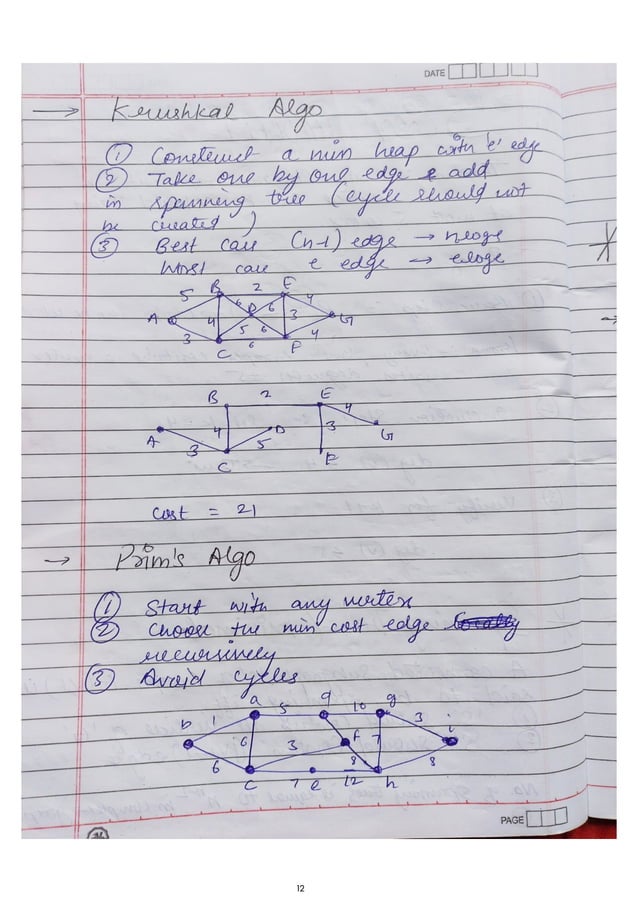 DATE
→ Krushkal Algo
① Construct a min heap with 'e' edge
② Take one by one edge & add
in spanning tree (cycle should not
be created)
③ Best case (n-1) edge → nloge
Worst case e edge → eloge
B 2 E
5 6 6 4
A 4 D 3 G
3 5 6 4
C 6 F
B 2 E
4 3 4
A D G
3 5
C F
cost = 21
→ Prim's Algo
① Start with any vertex
② Choose the min cost edge
recursively
③ Avoid cycles
a 5 d 10 g
b 1 3 i
6 3 f 7
6 8 8
c 7 e 12 h
PAGE
12